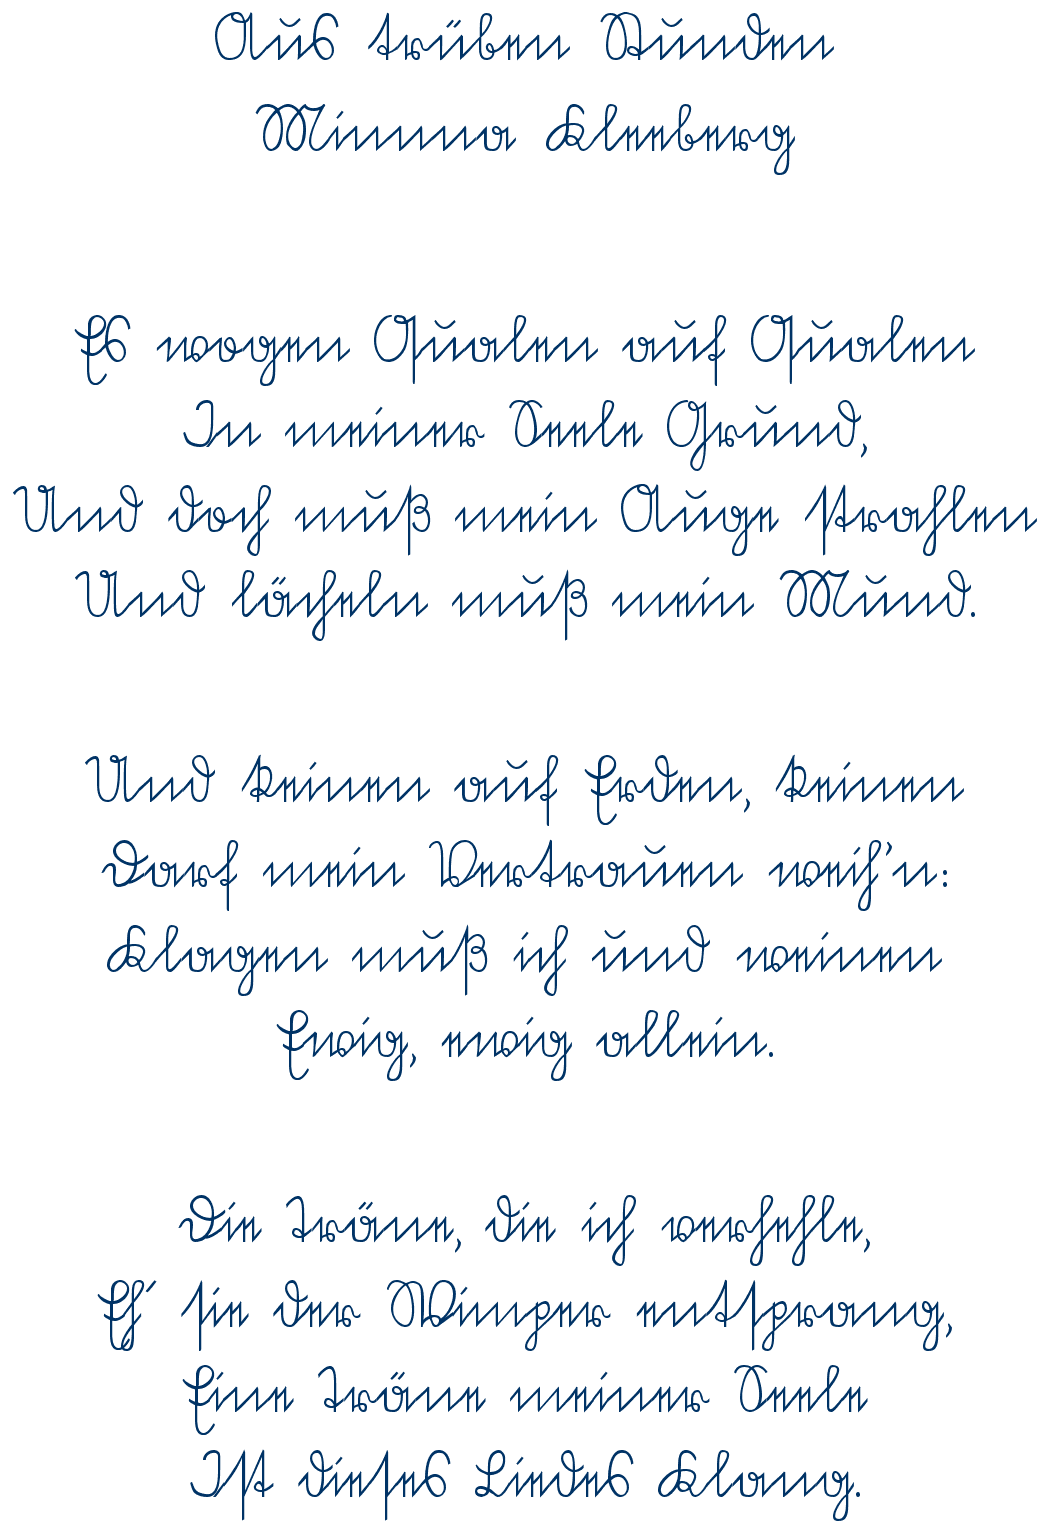 Aus trüben Stunden
Minna Kleeberg
Es wogen Qualen auf Qualen
In meiner Seele Grund,
Und doch muß mein Auge strahlen
Und lächeln muß mein Mund.
Und keinen auf Erden, keinen
Darf mein Vertrauen weih’n:
Klagen muß ich und weinen
Ewig, ewig allein.
Die Träne, die ich verhehle,
Eh´ sie der Wimper entsprang,
Eine Träne meiner Seele
Ist dieses Liedes Klang.